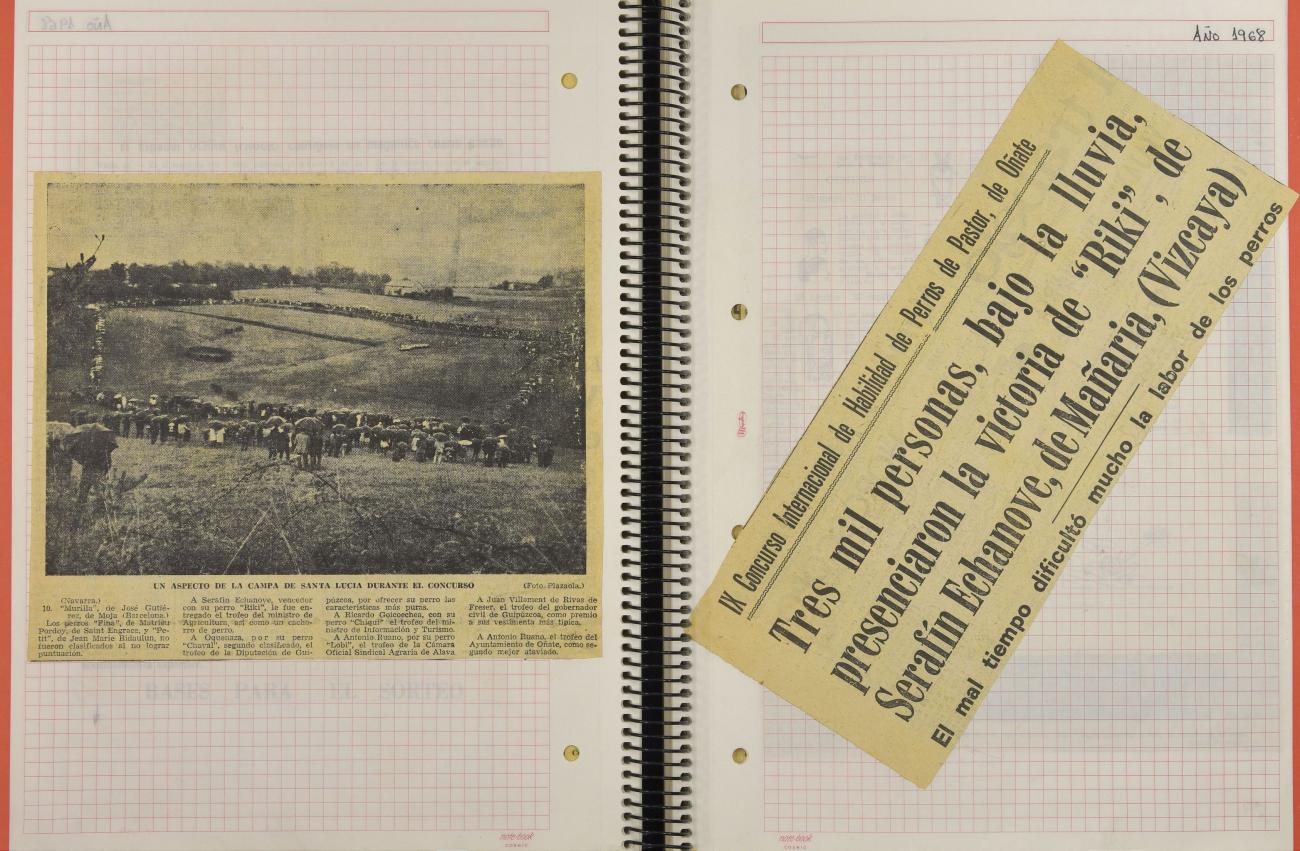 UN ASPECTO DE LA CAMPA DE SANTA LUCIA DURANTE EL CONCURSO
(Foto. Plazaola.)
(Navarra.)
10. "Murilla", de José Gutié-
rrez, de Moja (Barcelona.)
Los perros "Fina", de Matrieu
Pordoy, de Saint Engrace, y "Pe-
tit", de Jean Marie Bidaulun, no
fueron clasificados al no lograr
puntuación.
A Serafín Echanove, vencedor
con su perro "Riki", le fue en-
tregado el trofeo del ministro de
Agricultura, así como un cacho-
rro de perro.
A Oquenaza, por su perro
"Chaval", segundo clasificado, el
trofeo de la Diputación de Gui-
púzcoa, por ofrecer su perro las
características más puras.
A Ricardo Goicoechea, con su
perro "Chiqui" el trofeo del mi-
nistro de Información y Turismo.
A Antonio Ruano, por su perro
"Lobi", el trofeo de la Cámara
Oficial Sindical Agraria de Alava
A Juan Villament de Rivas de
Freser, el trofeo del gobernador
civil de Guipúzcoa, como premio
a sus vestimenta más típica.
A Antonio Ruano, el trofeo del
Ayuntamiento de Oñate, como se-
gundo mejor ataviado.
note-book
COSMIC
AÑO 1968
IX Concurso Internacional de Habilidad de Perros de Pastor, de Oñate
Tres mil personas, bajo la lluvia,
presenciaron la victoria de "Riki", de
Serafín Echanove, de Mañaria, (Vizcaya)
El mal tiempo dificultó mucho la labor de los perros
note-book
COSMIC